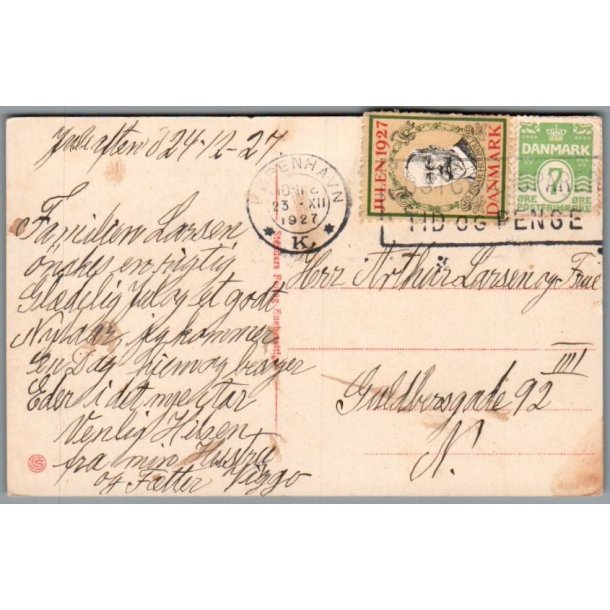 Juleaften d 24-12-27.
Familien Larsen
ønskes en rigtig
Glædelig Jul og et godt
Nytaar, jeg kommer
en Dag hjem og
Eder i det nye Aar
Venlig Hilsen
fra min Hustru
og Fætter Viggo
KØBENHAVN
23 -XII
1927
* K. *
JULEN 1927
DANMARK
DANMARK
7
ØRE ØRE
POSTFRIMÆRKE
TID OG PENGE
Herr Arthur Larsen og Frue
Guldbergsgade 92 IIII
N.